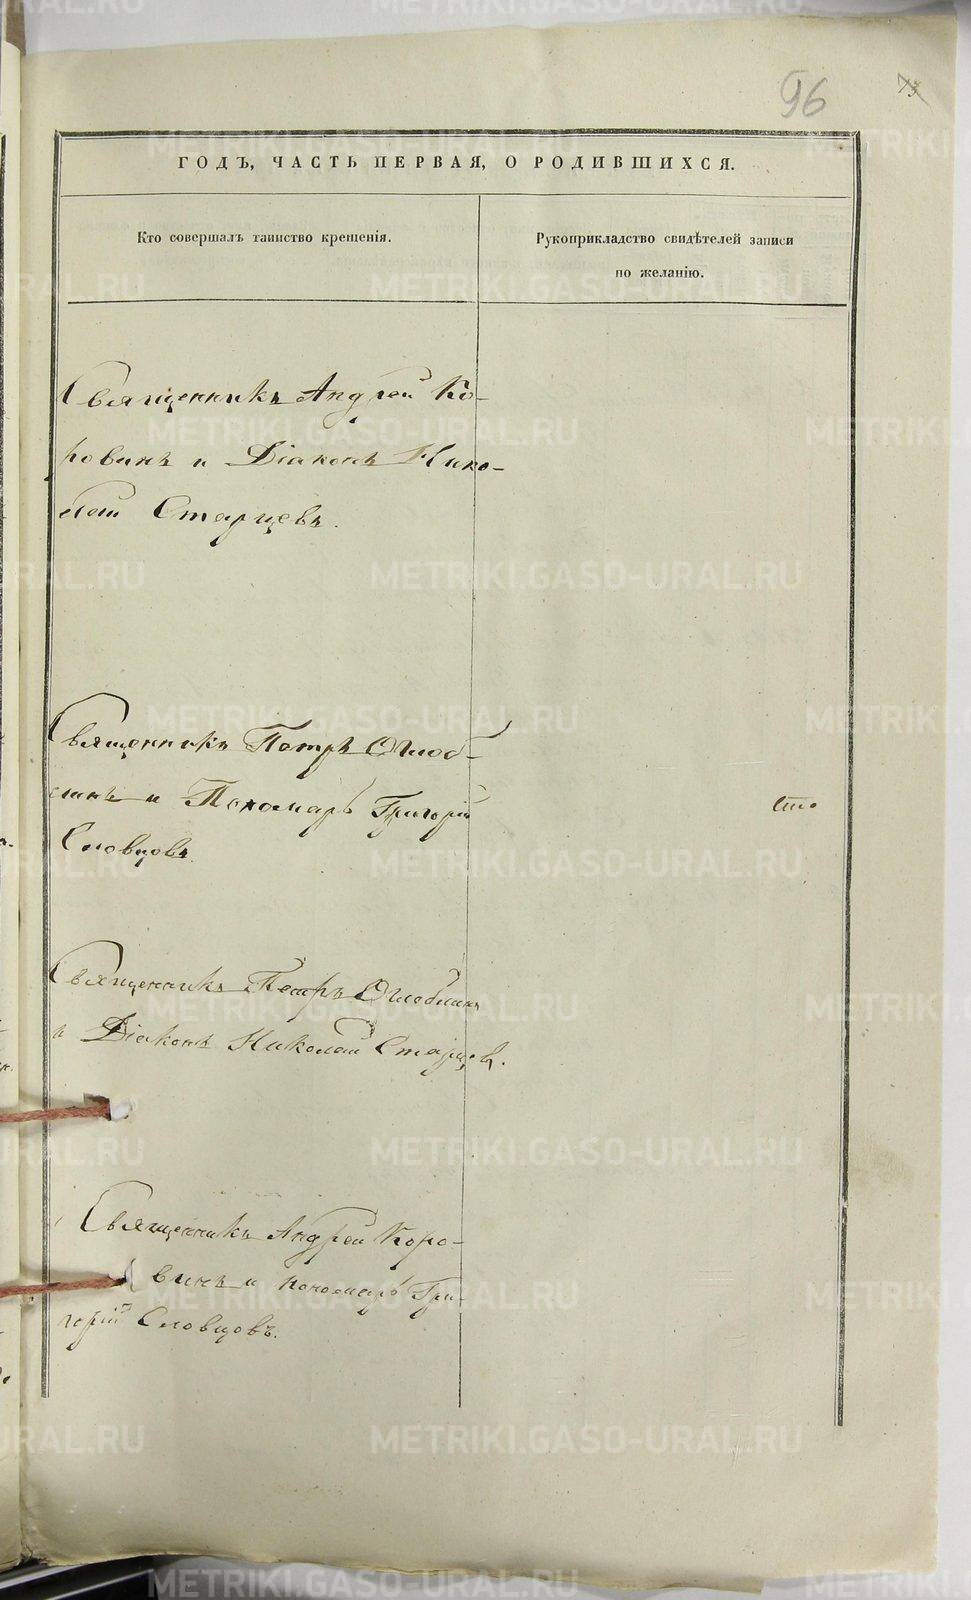 96
73
ГОДЪ, ЧАСТЬ ПЕРВАЯ, О РОДИВШИХСЯ.
Кто совершалъ таинство крещенія.
Рукоприкладство свидѣтелей записи
по желанію.
Священникъ Андрей Ко-
ровинъ и Діаконъ Нико-
лай Старцевъ.
Священникъ Петръ Оглоб-
линъ и Пономарь Григорій
Словцовъ
сто
Священникъ Петръ Оглоблинъ
и Діаконъ Николай Старцевъ.
Священникъ Андрей Коро-
винъ и пономарь Гри-
горій Словцовъ.
METRIKI.GASO-URAL.RU